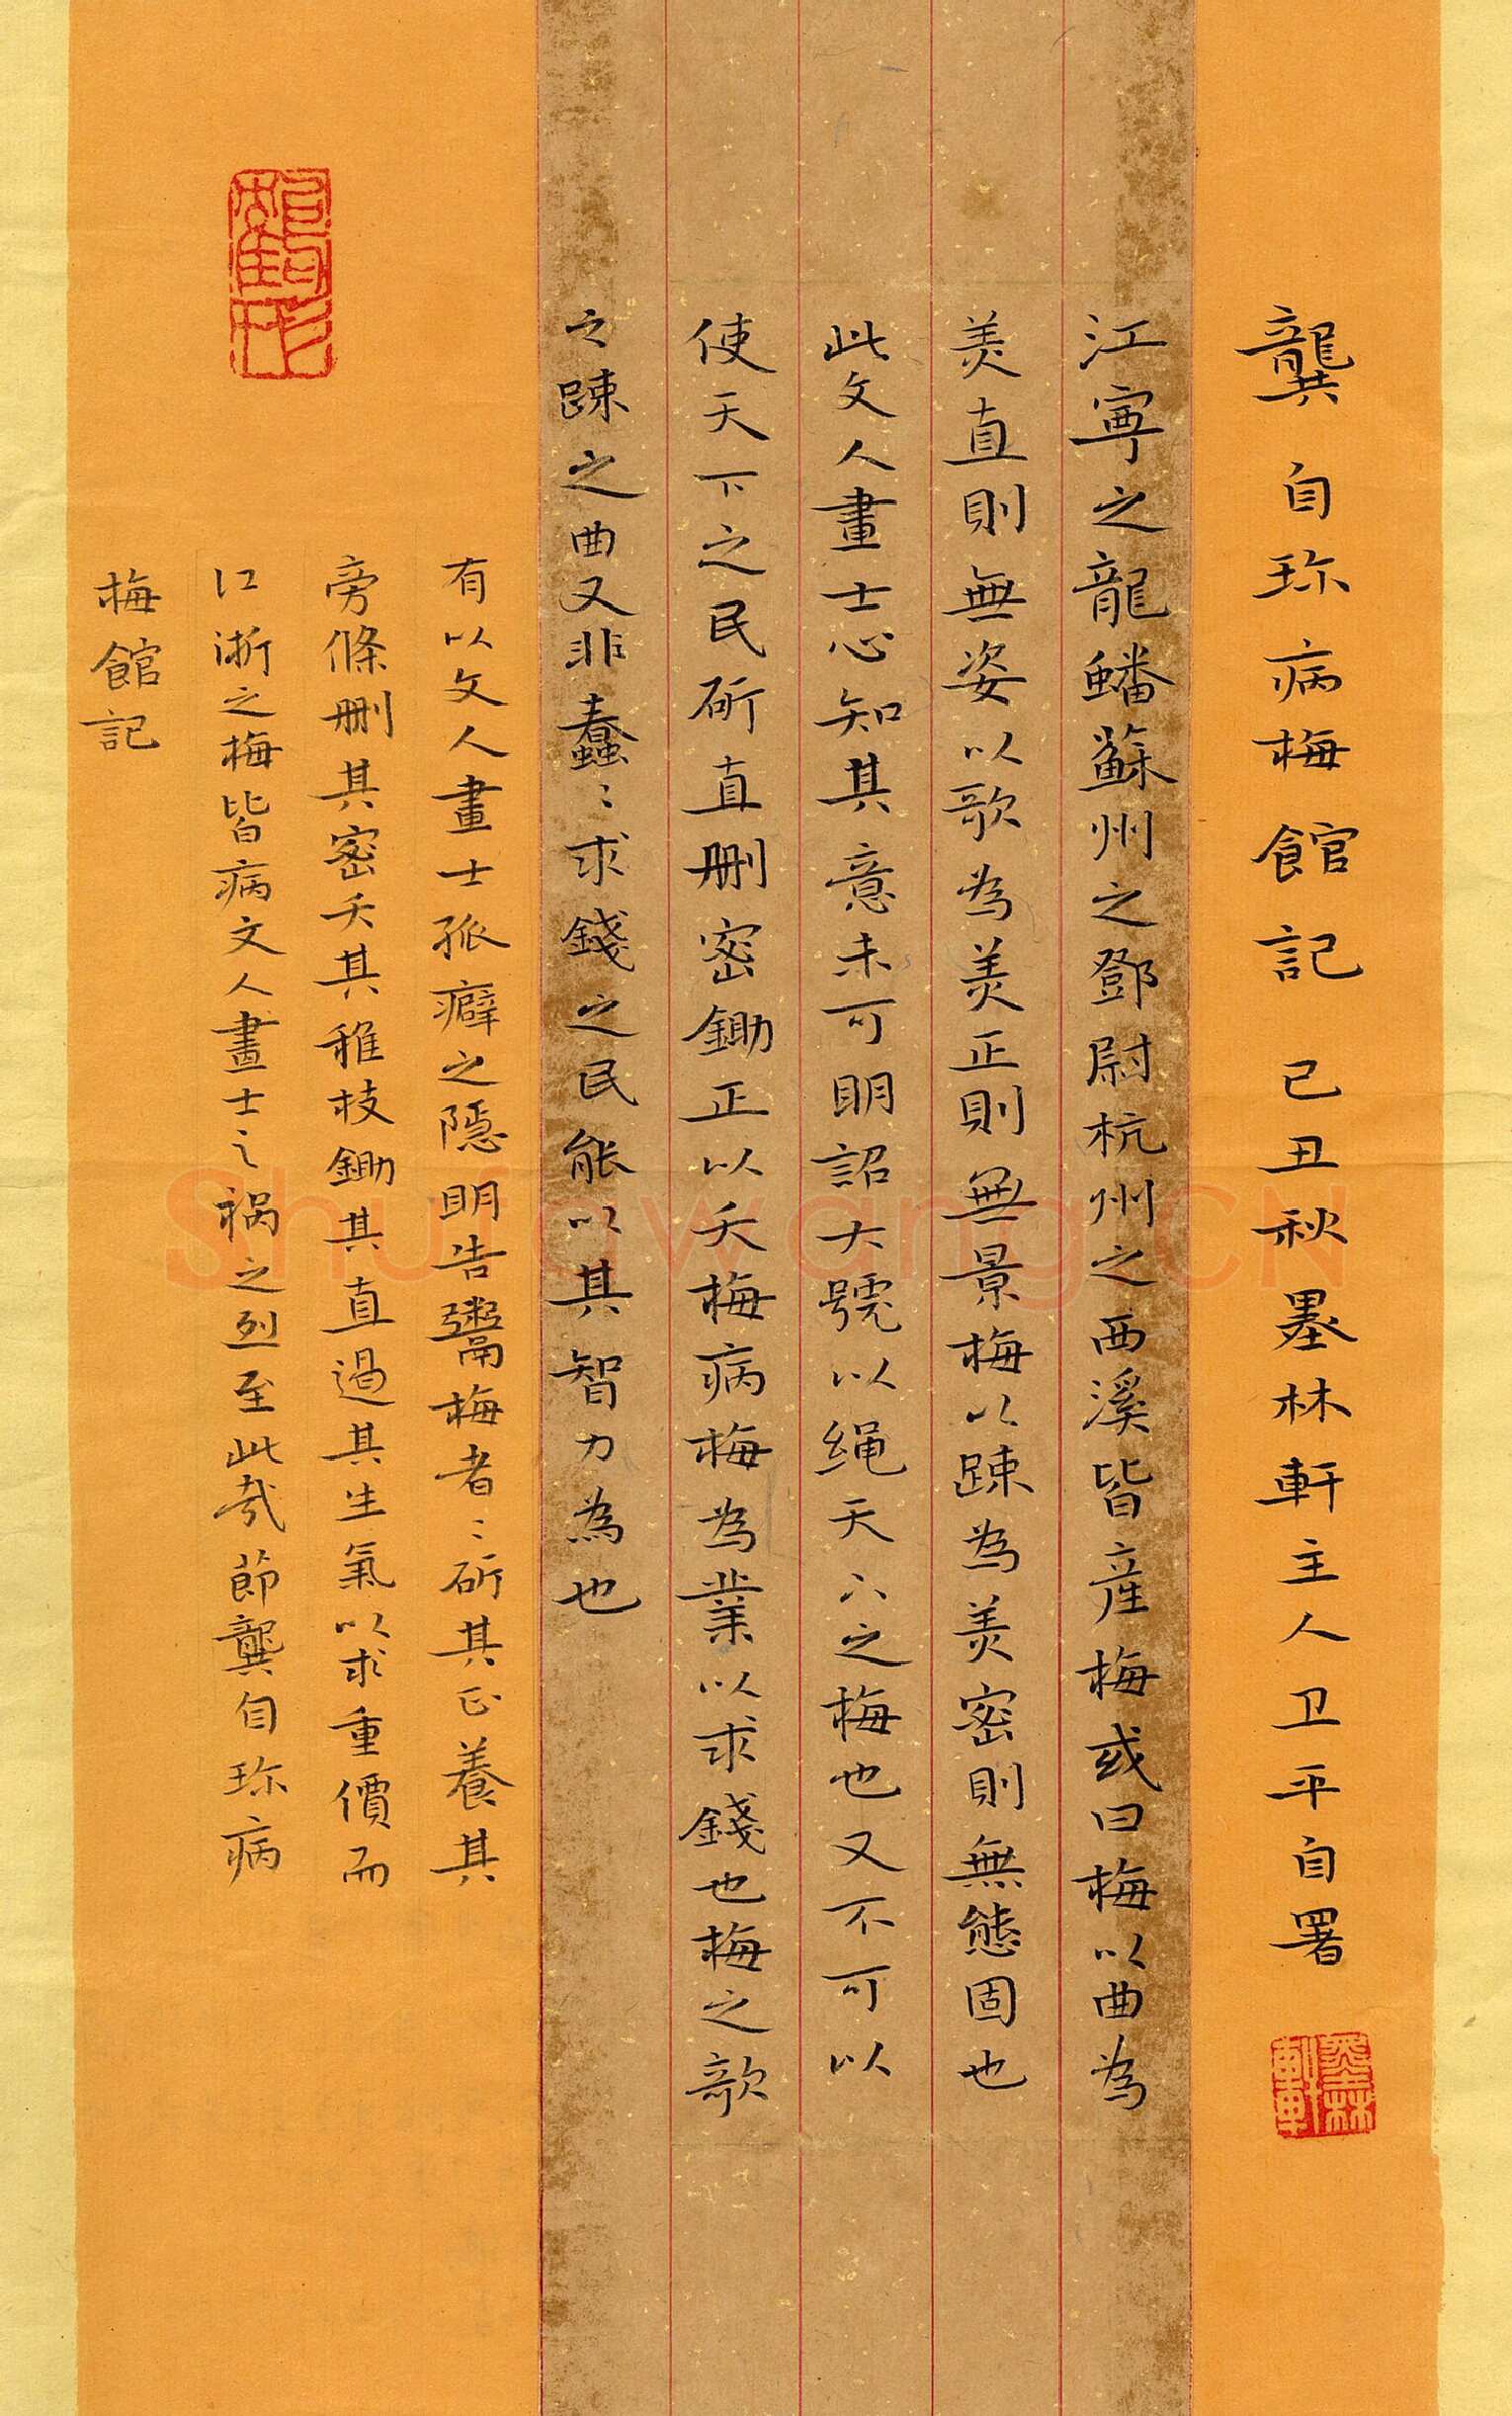 龔自珎病梅館記 己丑秋墨林軒主人卫平自署
墨林軒
江寧之龍蟠蘇州之鄧尉杭州之西溪皆産梅或曰梅以曲為
美直則無姿以欹為美正則無景梅以踈為美密則無態固也
此文人畫士心知其意未可明詔大號以绳天下之梅也又不可以
使天下之民斫直刪密鋤正以夭梅病梅為業以求錢也梅之欹
之踈之曲又非蠢﹕求錢之民能以其智力為也
有以文人畫士孤癖之隱明告鬻梅者﹕斫其正養其
旁條刪其密夭其稚枝鋤其直遏其生氣以求重價而
江浙之梅皆病文人畫士之禍之烈至此哉 節龔自珎病
梅館記
Shufawang.CN